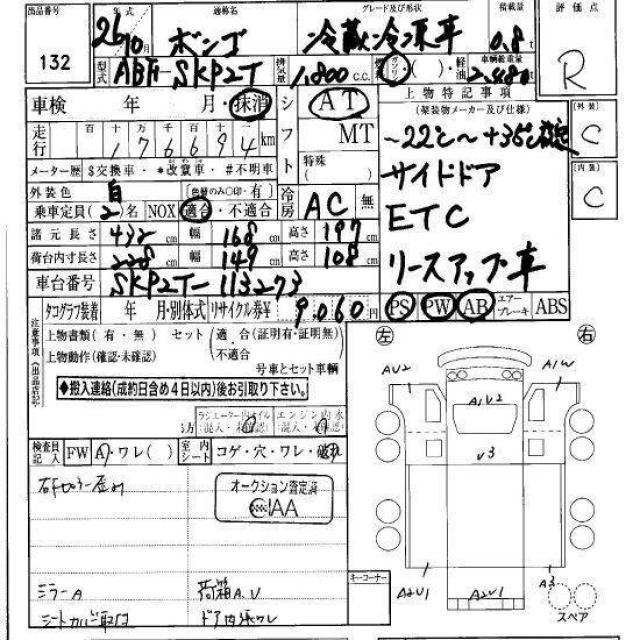 出品番号
132
年式
26年10月
通称名
ボンゴ
グレード及び形状
冷蔵冷凍車
積載量
0.8t
評価点
R
型式
ABF-SKP2T
排気量
1,800 C.C.
ガソリン ( )・軽油
車輌総重量
2,480
車検 年 月・抹消
シフト
AT
MT
特殊
( )
走行
百 十 万 千 百 十
176694km
メーター歴 $交換車・*改竄車・#不明車
上物特記事項
(架装物メーカー及び仕様)
-22℃~+35℃設定
サイドドア
ETC
リースアップ車
外装
C
内装
C
外装色 白
(色替のみ○印・有)
乗車定員(2)名
NOX 適合・不適合
冷房
AC 無
諸元長さ 432cm 幅 168cm 高さ 197cm
荷台内寸長さ 228cm 幅 149cm 高さ 108cm
車台番号 SKP2T-113273
タコグラフ装着 年 月・別体式
リサイクル券¥ 9,060円
PS PW AB エアーブレーキ ABS
注意事項(出品店記入)
上物書類(有・無) セット(適合(証明有・証明無)
・不適合
上物動作(確認・未確認)
号車とセット車輌
◆搬入連絡(成約日含め4日以内)後お引取り下さい。
ラジエーター内オイル
混入・未確認
エンジン内水
混入・未確認
検査員記入
FW A・ワレ( )
室内シート
コゲ・穴・ワレ・破れ
オークション査定済
CIAA
ミラーA
荷箱A.V
シートカバー取付
ドア内張ワレ
キーコーナー
左
右
AV2
A1W
A1V2
V3
A2V1
A2V1
A3
スペア